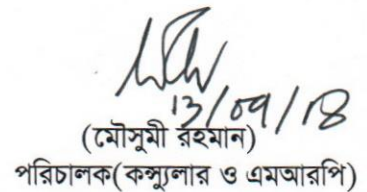 13/09/18
(মৌসুমী রহমান)
পরিচালক(কন্স্যুলার ও এমআরপি)